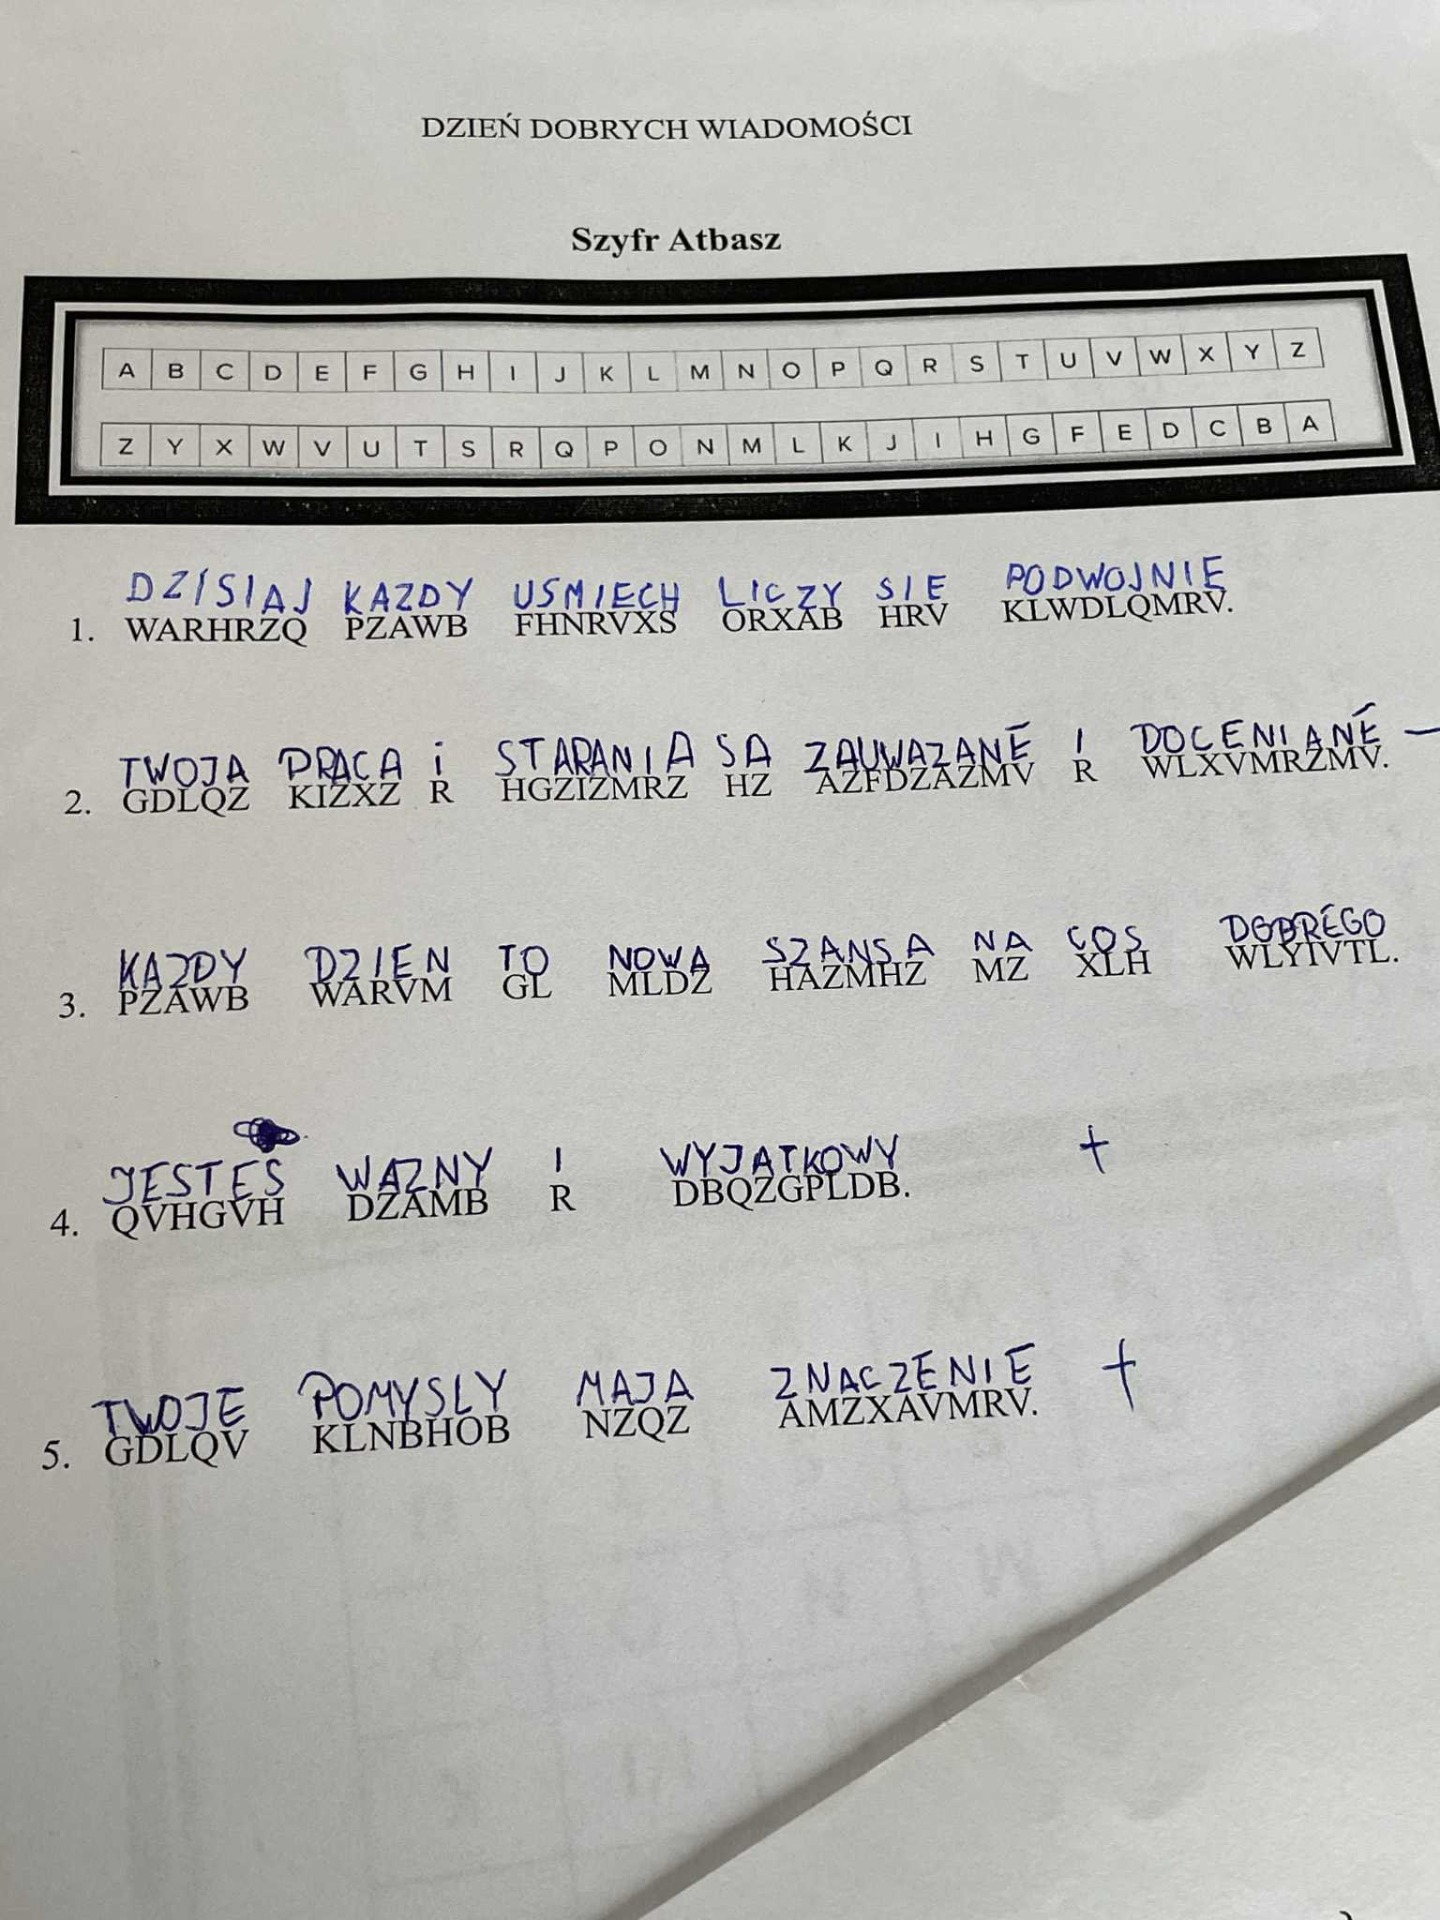 DZIEŃ DOBRYCH WIADOMOŚCI
Szyfr Atbasz
A B C D E F G H I J K L M N O P Q R S T U V W X Y Z
Z Y X W V U T S R Q P O N M L K J I H G F E D C B A
DZISIAJ KAZDY USMIECH LICZY SIE PODWOJNIE
1. WARHRZQ PZAWB FHNRVXS ORXAB HRV KLWDLQMRV.
TWOJA PRACA i STARANIA SA ZAUWAZANE I DOCENIANE —
2. GDLQZ KIZXZ R HGZIZMRZ HZ AZFDZAZMV R WLXVMRZMV.
KAZDY DZIEN TO NOWA SZANSA NA COS DOBREGO
3. PZAWB WARVM GL MLDZ HAZMHZ MZ XLH WLYIVTL.
JESTES WAZNY I WYJATKOWY +
4. QVHGVH DZAMB R DBQZGPLDB.
TWOJE POMYSLY MAJA ZNACZENIE +
5. GDLQV KLNBHOB NZQZ AMZXAVMRV.